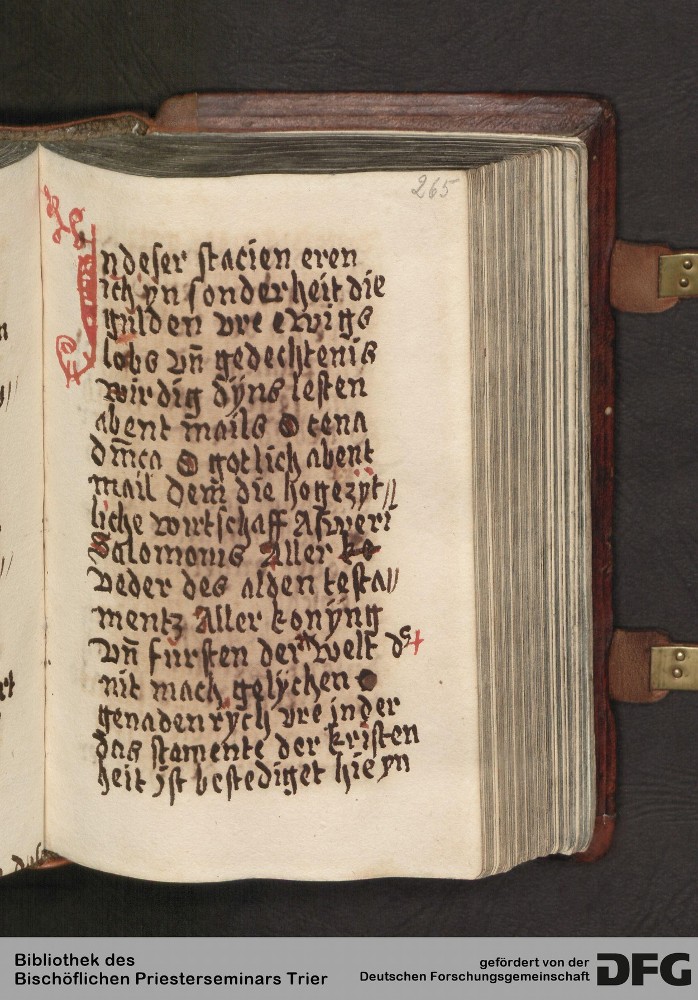 265
Jn deser stacien eren
ich yn sonderheit die
gulden vre ewigs
lobs vn̄ gedechtenis
wirdig dÿns lesten
abent mails O cena
dm̄ca O gotlich abent
mail dem̄ die hogezÿt//
liche wirtschaff Asweri
Salomonis Aller
veder des alden testa//
mentz Aller konÿng
vn̄ fursten der welt
nit mach gelÿchen O
genaden rÿch vre in der
das stamente der kristen
heit ÿst bestediget hie yn
Bibliothek des
Bischöflichen Priesterseminars Trier
gefördert von der
Deutschen Forschungsgemeinschaft DFG